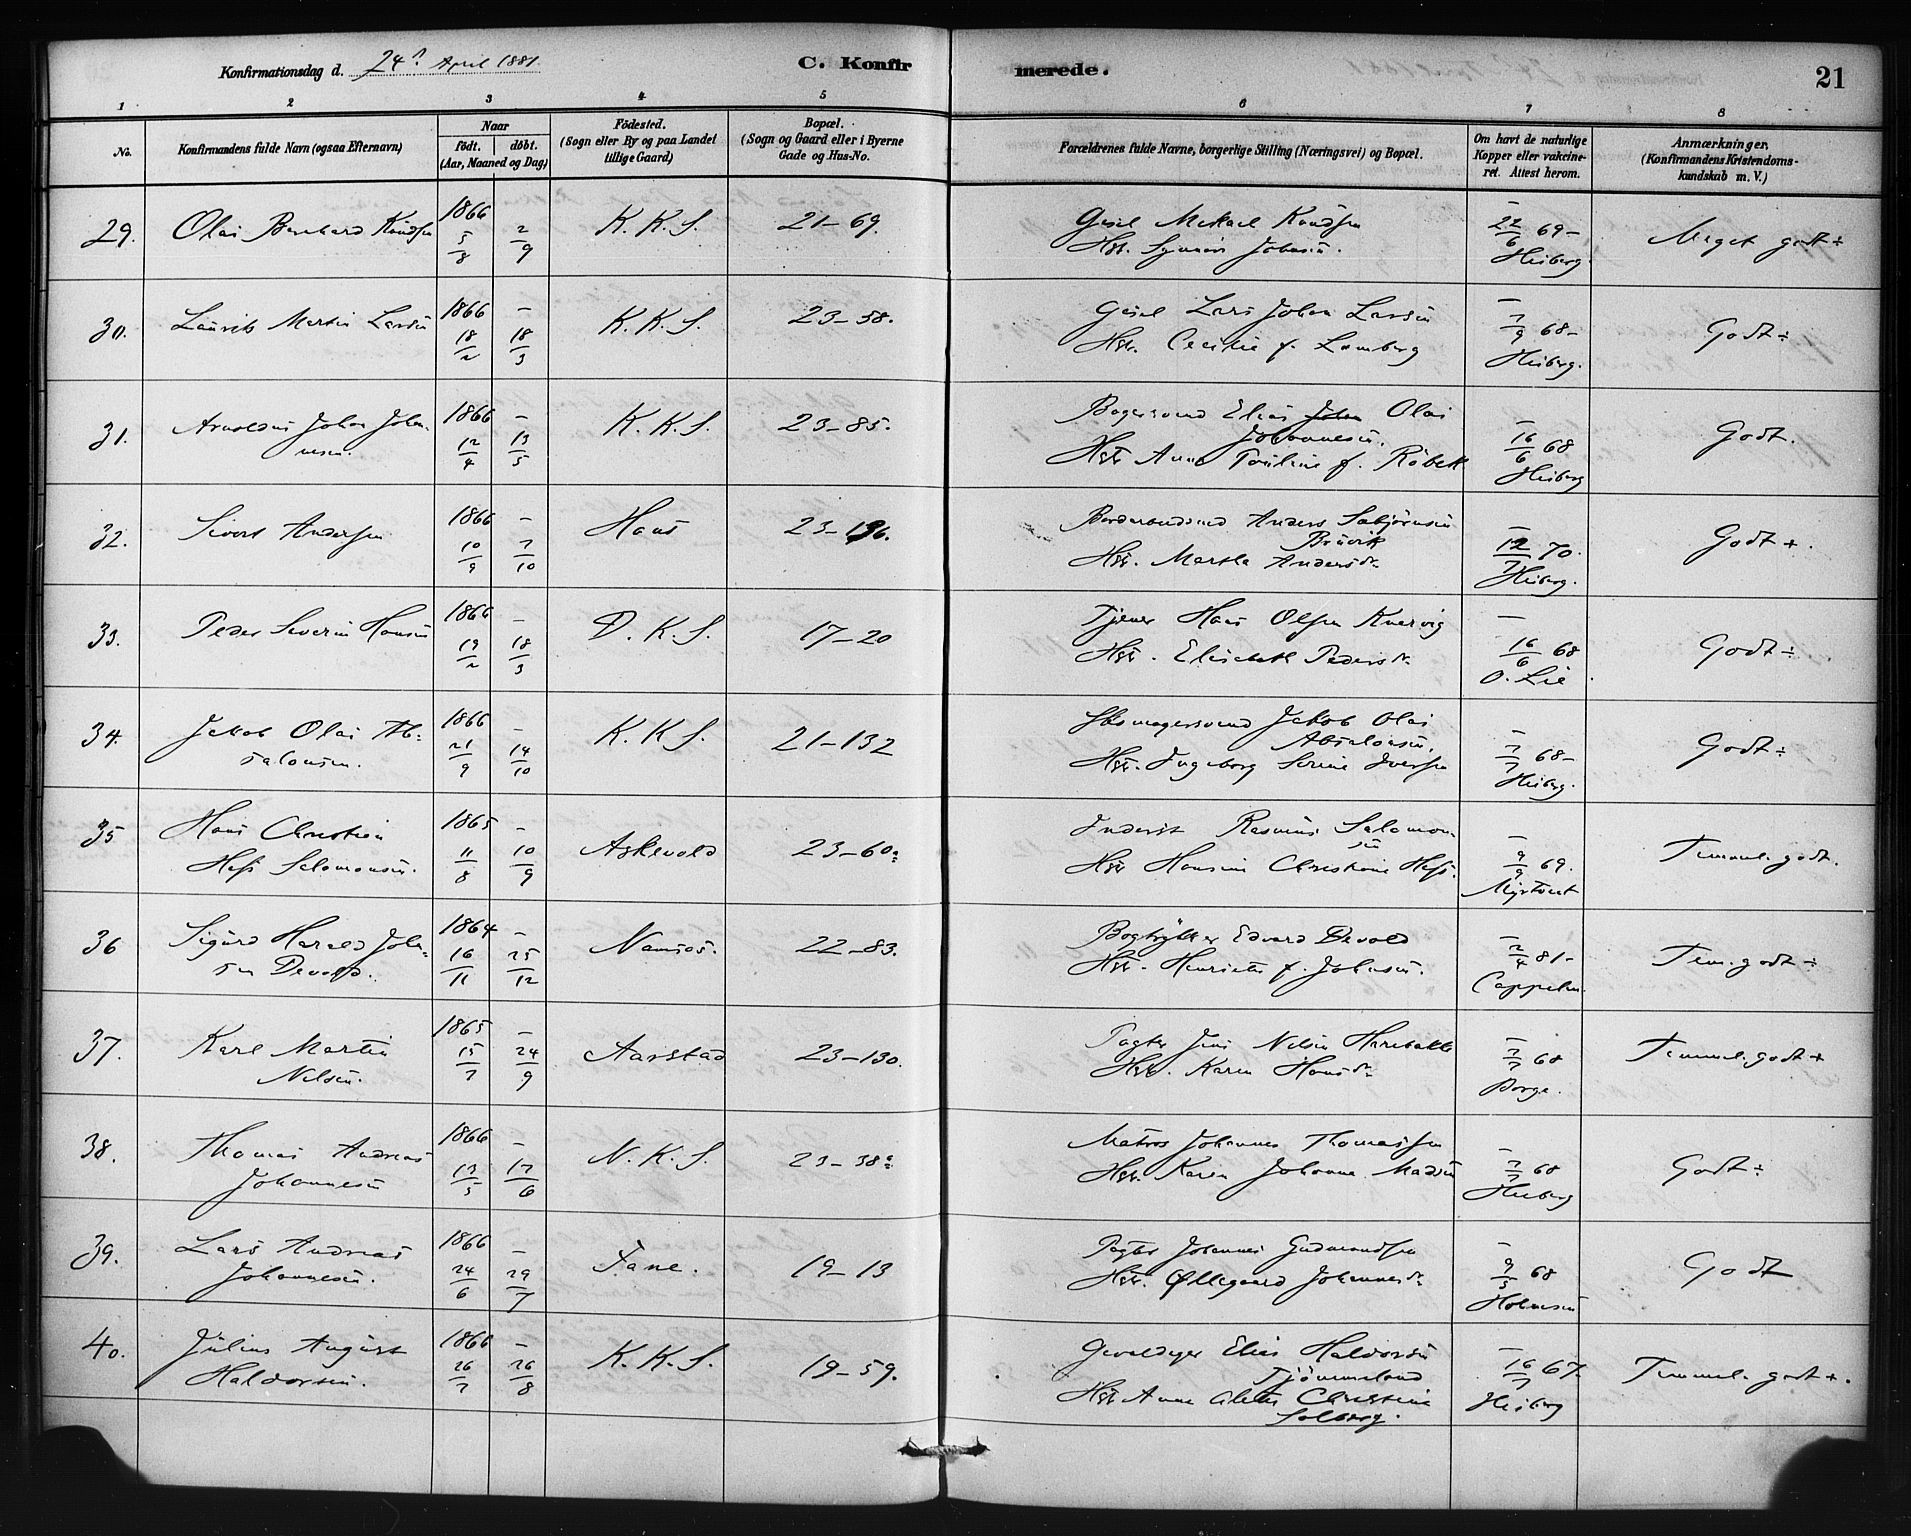 Konfirmationsdag d. 24 April 1881.
C. Konfirmerede.
21
1 2 3 4 5 6 7 8
No.
Konfirmandens fulde Navn (ogsaa Efternavn)
Naar
födt. döbt.
(Aar, Maaned og Dag)
Födested.
(Sogn eller By og paa Landet
tillige Gaard)
Bopæl.
(Sogn og Gaard eller i Byerne
Gade og Hus-No.
Forældrenes fulde Navne, borgerlige Stilling (Næringsvei) og Bopæl.
Om havt de naturlige
Kopper eller vakcine-
ret. Attest herom.
Anmærkninger,
(Konfirmandens Kristendoms-
kundskab m. V.)
29. Olai Bernhard Knudsen 1866 5/8 2/9 K. K. S. 21-69. Mikael Knudsen 22/6 69-
Heiberg. Meget godt÷
30. Laurits Martin Larsen 1866 - 18/2 18/3 K. K. S. 23-58. Lars Johan Larsen - 7/9 68-
Hst. Cecilie f. Lamberg Heiberg. Godt÷
31. Arnoldus Johan Johan-
nesen. 1866 - 12/4 13/5 K. K. S. 23-85. Bagersvend Elias Olai
Johannesen. - 16/6 68
Hst. Anne Pouline f. Röbek Heiberg Godt.
32. Sivert Andersen 1866 - 10/9 7/10 Haus 23-136. Anders Sebjörnsen
Bruvik - 12/7 70.
Hst. Martha Andersdr. Heiberg. Godt+.
33. Peder Severin Hansen 1866 - 19/2 18/3 D. K. S. 17-20 Tjener Hans Olsen - 16/6 68
Hst. Elisabeth Pedersdr. O. Lie. Godt÷
34. Jakob Olai Ab-
salonsen. 1866 - 21/9 14/10 K. K. S. 21-132 Skomagersvend Jakob Olai
Absalonsen. - 7/7 68-
Hst. Ingeborg Serine Iversen Heiberg. Godt÷
35 Hans Christian
Hess Salomonsen. 1865 - 11/8 10/9 Askevold 23-60a Inderst Rasmus Salomon-
sen - 9/9 69.
Hst Hansine Christiane Hess. Myrtvedt Temmel. godt.
36 Sigurd Harald Johan-
sen Devold. 1864 - 16/11 25/12 Namsos. 22-83. Bogtrykker Edvard Devold - 2/4 81-
Hst. Henriette f. Johnsen. Cappelen Tem. godt÷
37. Karl Martin
Nilsen. 1865 - 15/7 24/9 Aarstad 23-130. Pagter Jens Nilsen Harebakke - 7/7 68
Hst. Karen Hansdr. Borge. Temmel. godt+
38. Thomas Andreas
Johannesen 1866 - 13/5 17/6 N. K. S. 23-38a Matros Johannes Thomassen - 7/7 68
Hst. Karen Johanne Madsen Heiberg Godt÷
39. Lars Andreas
Johannesen. 1866 - 24/6 29/7 Fane. 19-13 Pagter Johannes Gudmundsen - 9/5 68
Hst. Øllegaard Johannesdr. Holmsen Godt
40. Julius August
Haldorsen. 1866 - 26/7 26/8 K. K. S. 19-59. Gevaldiger Elias Haldorsen
Tjömmeland - 16/7 67.
Hst Anne Christine
Solberg. Heiberg Temmel. godt+.